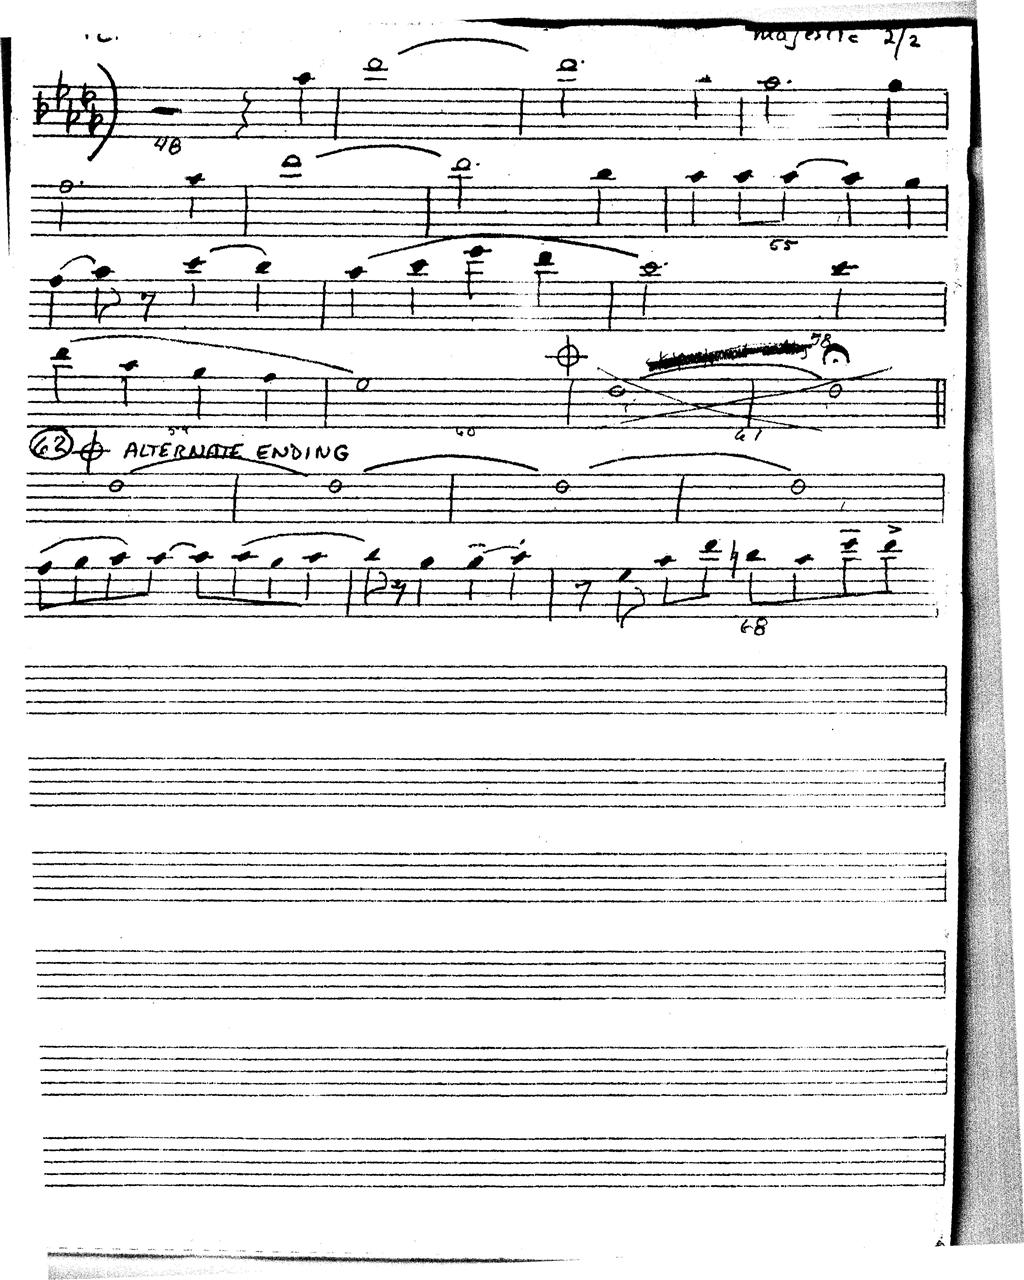 majestic 2/2
48
55
58
59 60 61
62 ALTERNATE ENDING
68